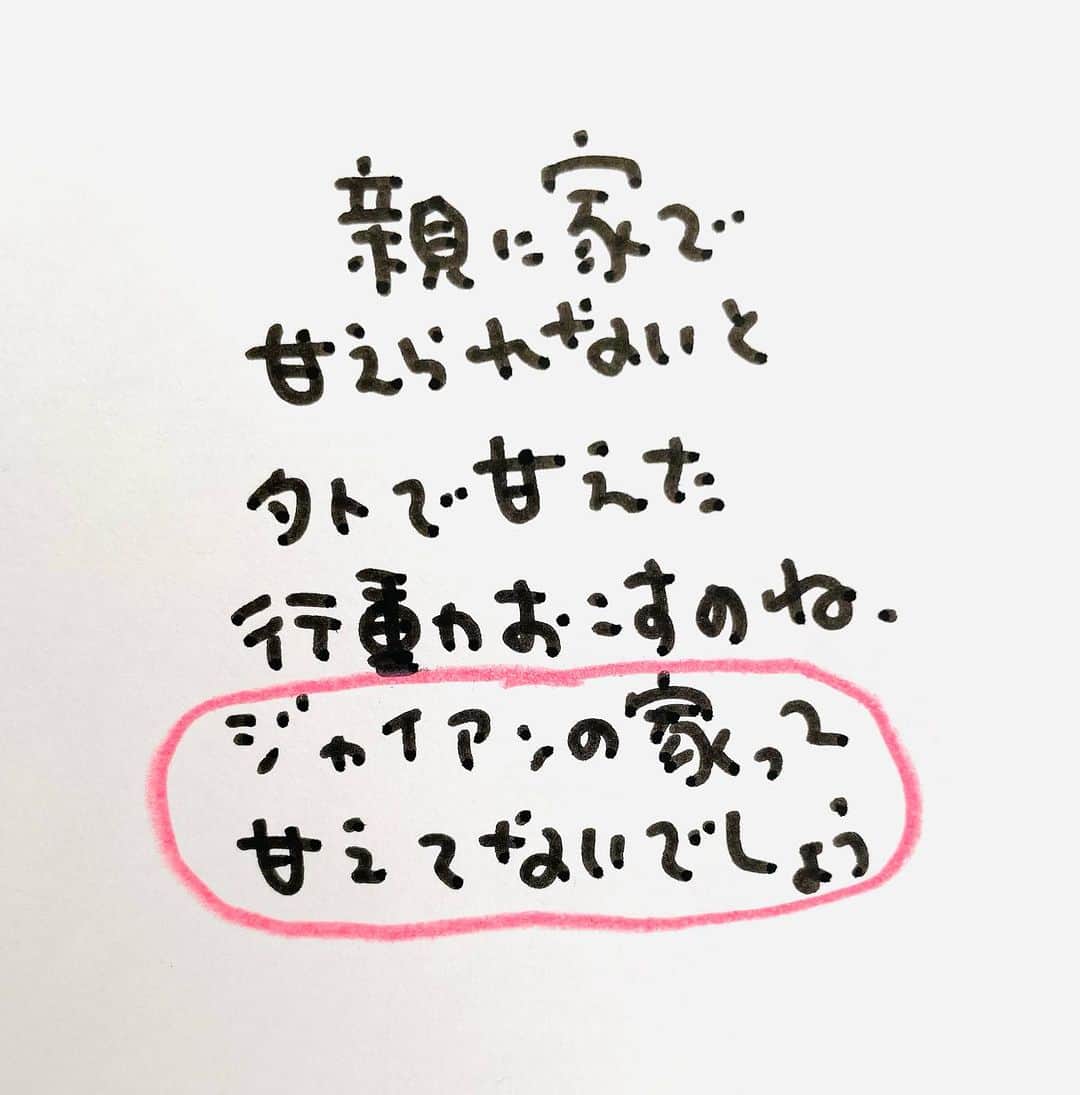 親に家で
甘えられないと
外で甘えた
行動おこすのね、
ジャイアンの家って
甘えてないでしょう